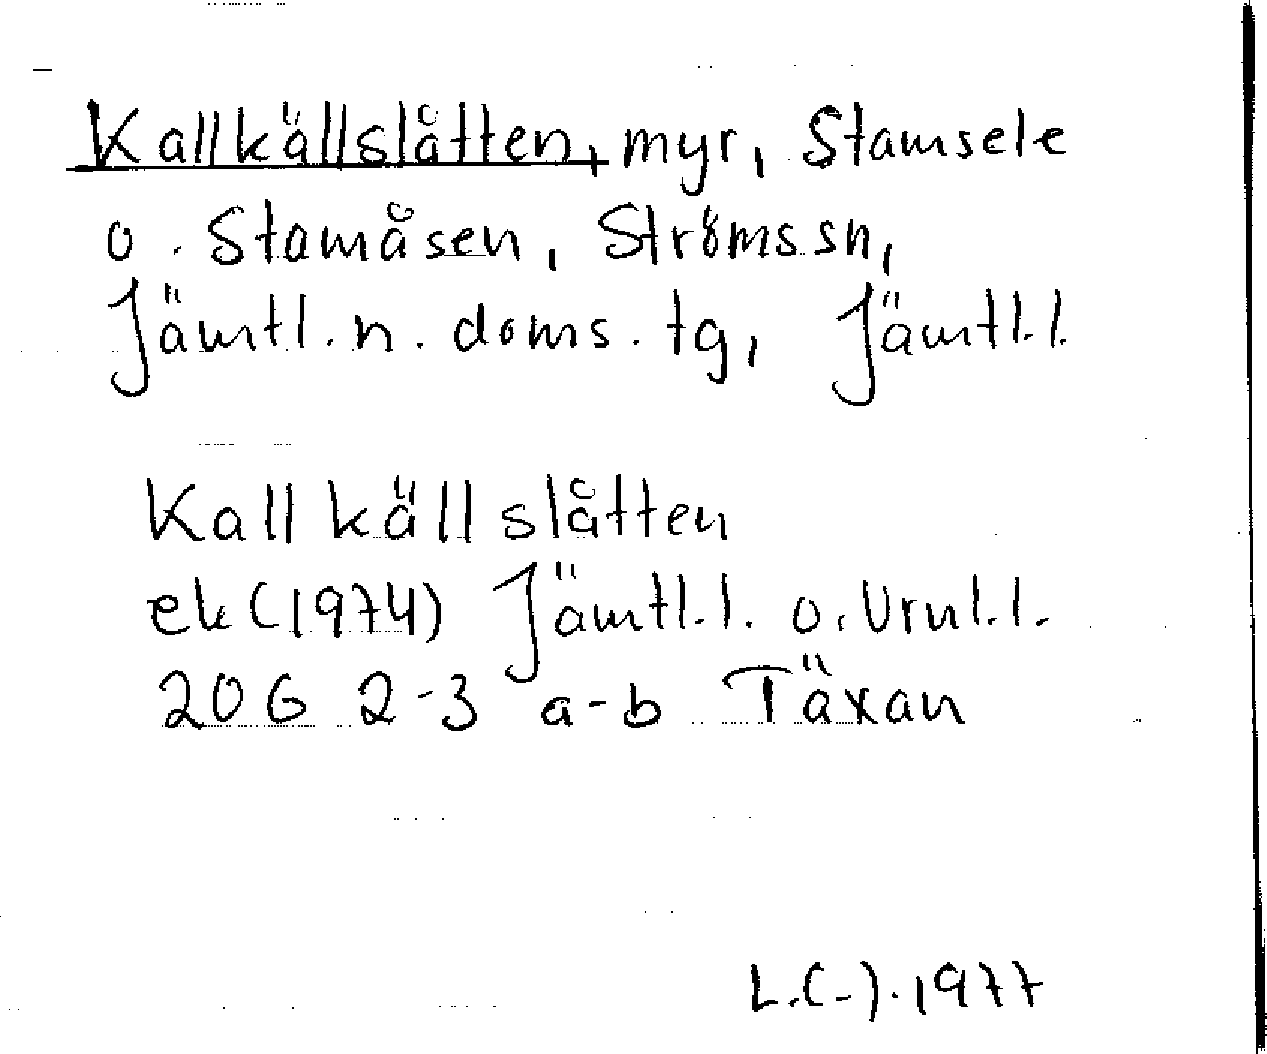 Kallkällslåtten, myr, Stamsele
o. Stamåsen, Ströms sn,
Jämtl. n. doms. tg, Jämtl.l.
Kallkällslåtten
ek (1974) Jämtl.l. o. Vrnl.l.
20G 2-3 a-b Täxan
L.(-).1977